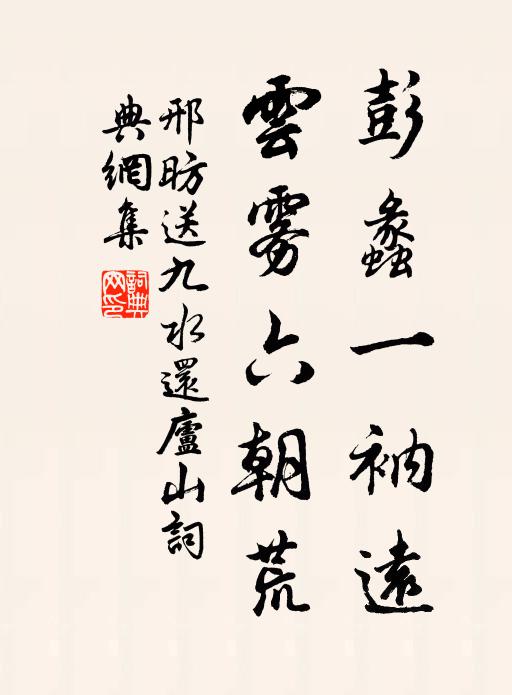 彭蠡一衲遠
雲霧六朝荒
邢昉送九水還廬山詞
典網集
詞典網印